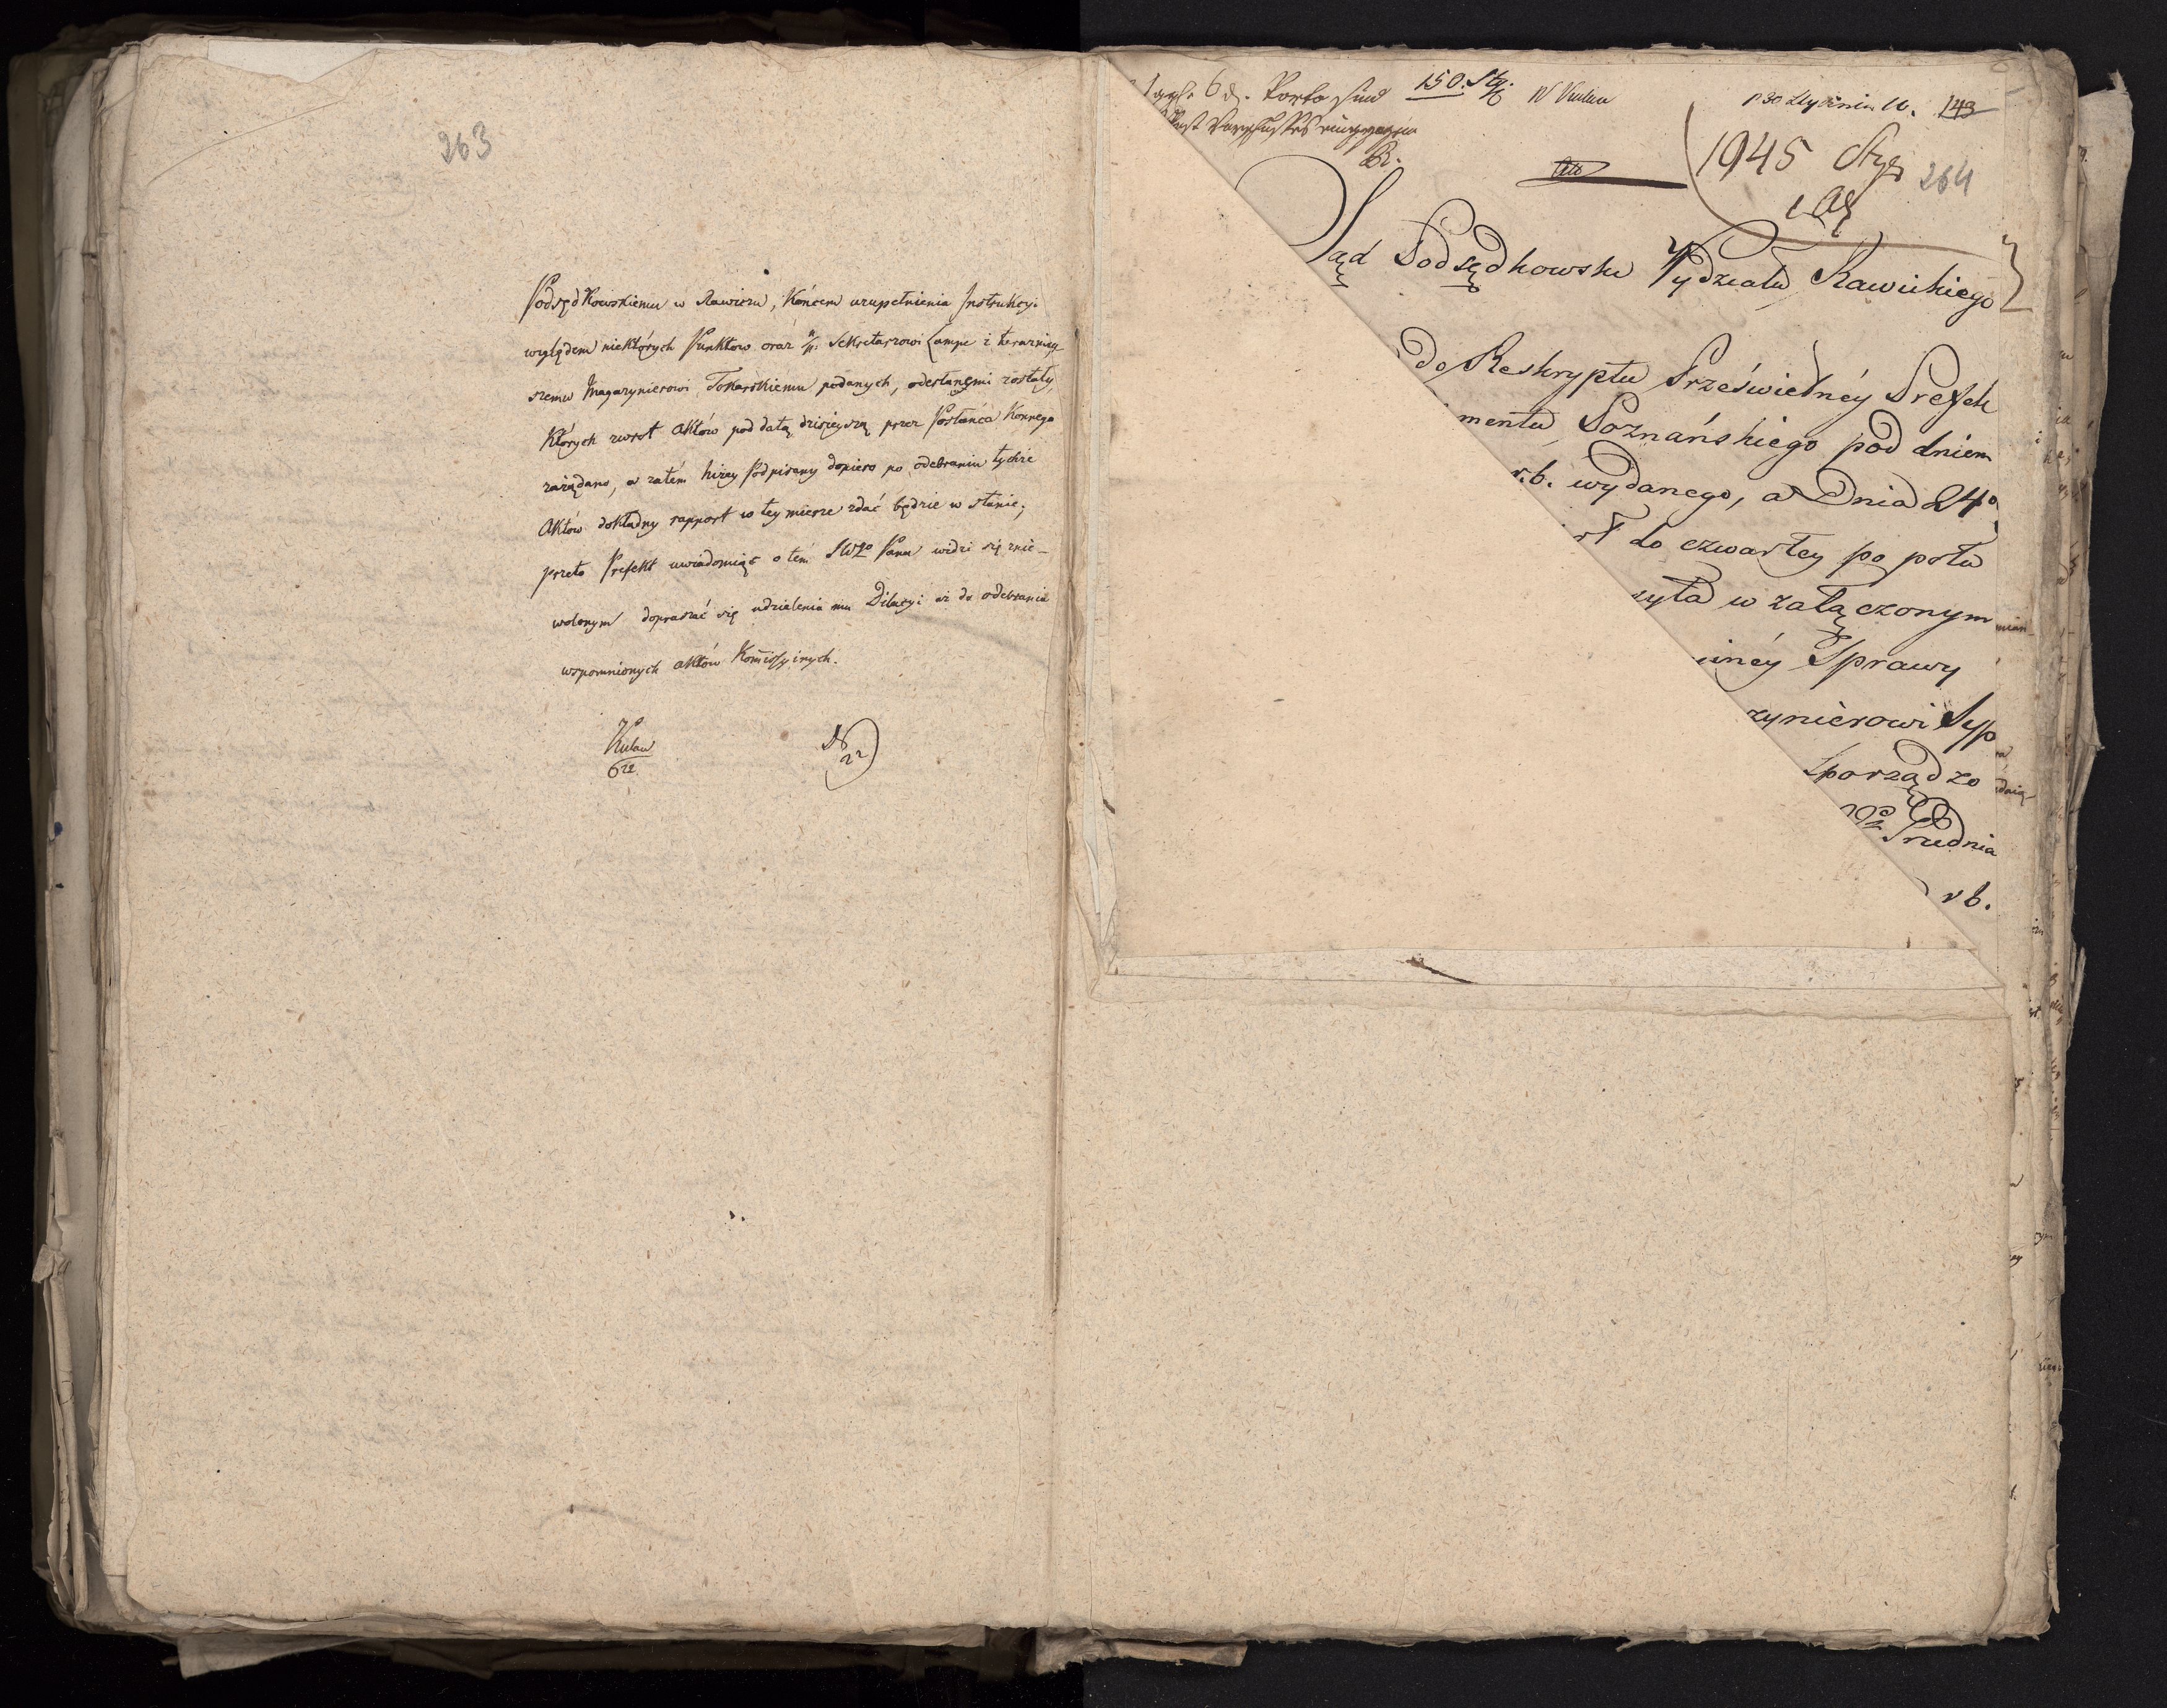 263
Podsędkowskiemu w Rawiczu, końcem uzupełnienia Instrukcyi
względem niektórych Punktow oraz Sekretarzowi Lampe i terazniey-
szemu Magazynierowi Tokarskiemu podanych, odesłanęmi zostały,
których zwrot Aktów pod datą dzisieyszą przez Posłańca konnego
zażądano, a zatém niżey podpisany dopiero po odebraniu tychże
Aktów dokładny rapport w tey mierze zdać będzie w stanie;
przeto Prefekt uwiadomiąc o tém JWgo Pana widzi się znie-
wolonym dopraszać się udzielenia mu Dilacyi aż do odebrania
wspomnionych aktów Kom̄issyinych.
Kulau
6 22
22
6 d. Porto sind 150.
143
1945 Stycz
264
Sąd Podsędkowski Wydziału Rawickiego
do Reskryptu Prześwietnéy Prefek
mentu Poznańskiego pod dniem
r.b. wydanego, a Dnia 24o
do czwartey po połu
syła w załączonym
inéy Sprawy
zynierowi Syp
Sporządzo
Grudnia
r b.